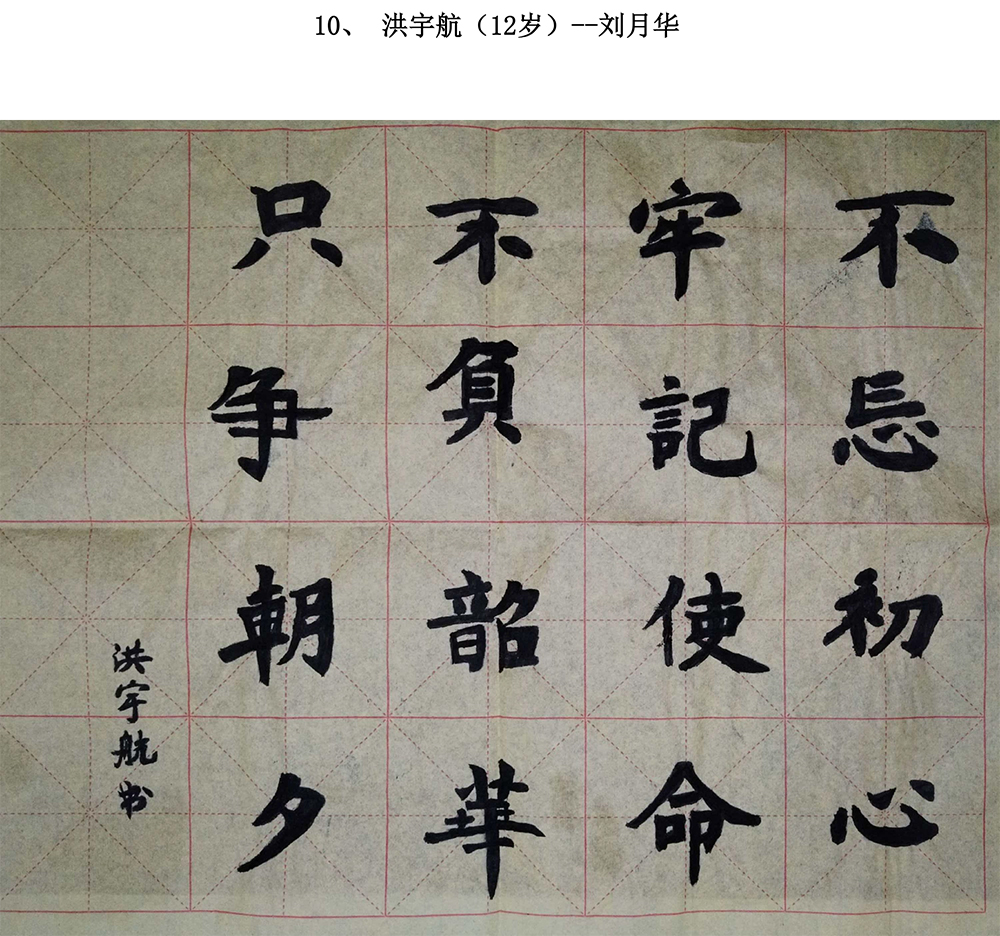 10、 洪宇航（12岁）--刘月华
不忘初心
牢記使命
不負韶華
只争朝夕
洪宇航书